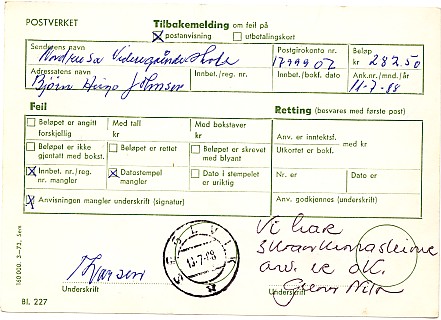 POSTVERKET
Tilbakemelding om feil på
postanvisning utbetalingskort
Sendstens navn Postgirokonto nr. Beløp
Nordreisa Videregående Skole 1799902 kr 282.50
Adressatens navn Innbet./reg. nr. Innbet./bokf. dato Ank.nr./mnd./år
Bjørn Hugo Johnsen 11-7-88
Feil Retting (besvares med første post)
Beløpet er angitt forskjellig Med tall kr Med bokstaver kr Anv. er inntektsf. med kr
Beløpet er ikke gjentatt med bokst. Beløpet er rettet Beløpet er skrevet med blyant Utkortet er bokf.
Innbet. nr./reg. nr. mangler Datostempel mangler Dato i stempelet er uriktig Nr. er Dato er
Anvisningen mangler underskrift (signatur) Anv. godkjennes (underskrift)
Vi har
anv. er OK.
13-7-88
Underskrift Underskrift
160 000. 3-73.
Bl. 227